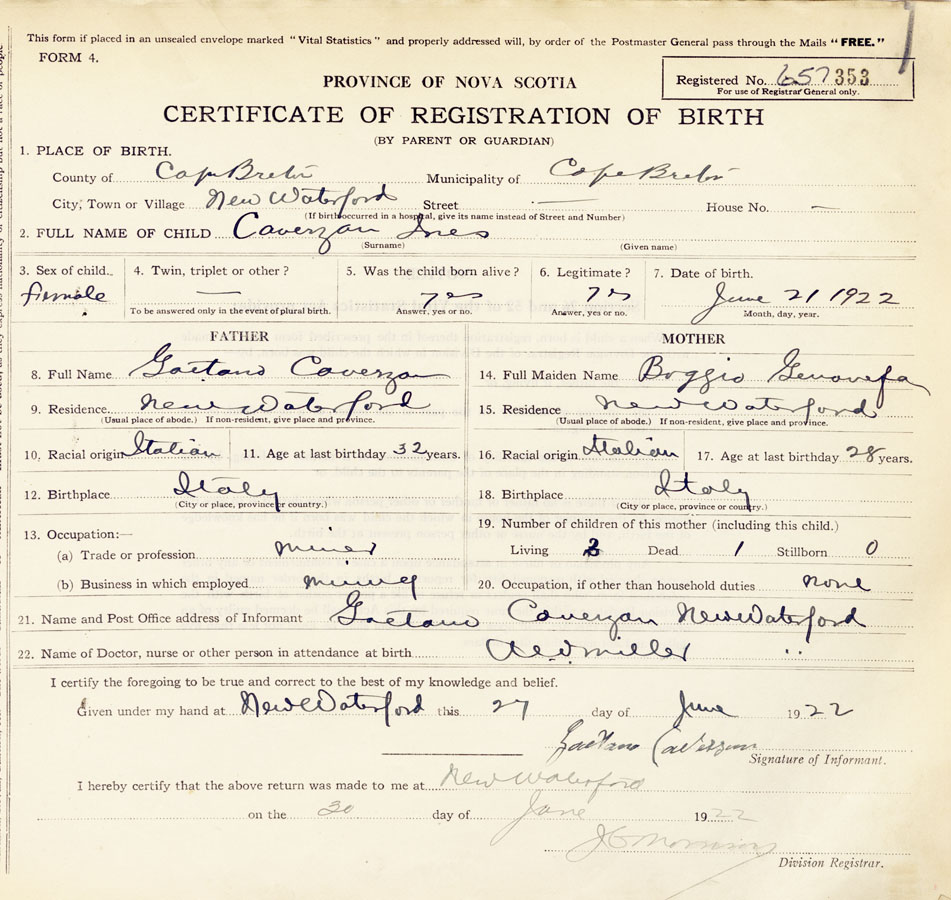 This form if placed in an unsealed envelope marked "Vital Statistics" and properly addressed will, by order of the Postmaster General pass through the Mails "FREE."
FORM 4.
PROVINCE OF NOVA SCOTIA
Registered No. 657 353
For use of Registrar General only.
CERTIFICATE OF REGISTRATION OF BIRTH
(BY PARENT OR GUARDIAN)
1. PLACE OF BIRTH.
County of Cape Breton Municipality of Cape Breton
City, Town or Village New Waterford Street — House No. —
(If birth occurred in a hospital, give its name instead of Street and Number)
2. FULL NAME OF CHILD Caverzan Ines
(Surname) (Given name)
3. Sex of child. 4. Twin, triplet or other? 5. Was the child born alive? 6. Legitimate? 7. Date of birth.
female — yes yes June 21 1922
To be answered only in the event of plural birth. Answer, yes or no. Answer, yes or no. Month, day, year.
FATHER MOTHER
8. Full Name Gaetano Caverzan 14. Full Maiden Name Boggio Genovefa
9. Residence. New Waterford 15. Residence New Waterford
(Usual place of abode.) If non-resident, give place and province. (Usual place of abode.) If non-resident, give place and province.
10. Racial origin Italian 11. Age at last birthday 32 years. 16. Racial origin Italian 17. Age at last birthday 28 years.
12. Birthplace Italy 18. Birthplace Italy
(City or place, province or country.) (City or place, province or country.)
13. Occupation:— 19. Number of children of this mother (including this child.)
(a) Trade or profession miner Living 3 Dead 1 Stillborn 0
(b) Business in which employed mining 20. Occupation, if other than household duties none
21. Name and Post Office address of Informant Gaetano Caverzan New Waterford
22. Name of Doctor, nurse or other person in attendance at birth Miller "
I certify the foregoing to be true and correct to the best of my knowledge and belief.
Given under my hand at New Waterford this 27 day of June 1922
Gaetano Caverzan
Signature of Informant.
I hereby certify that the above return was made to me at New Waterford
on the 30 day of June 1922
Division Registrar.